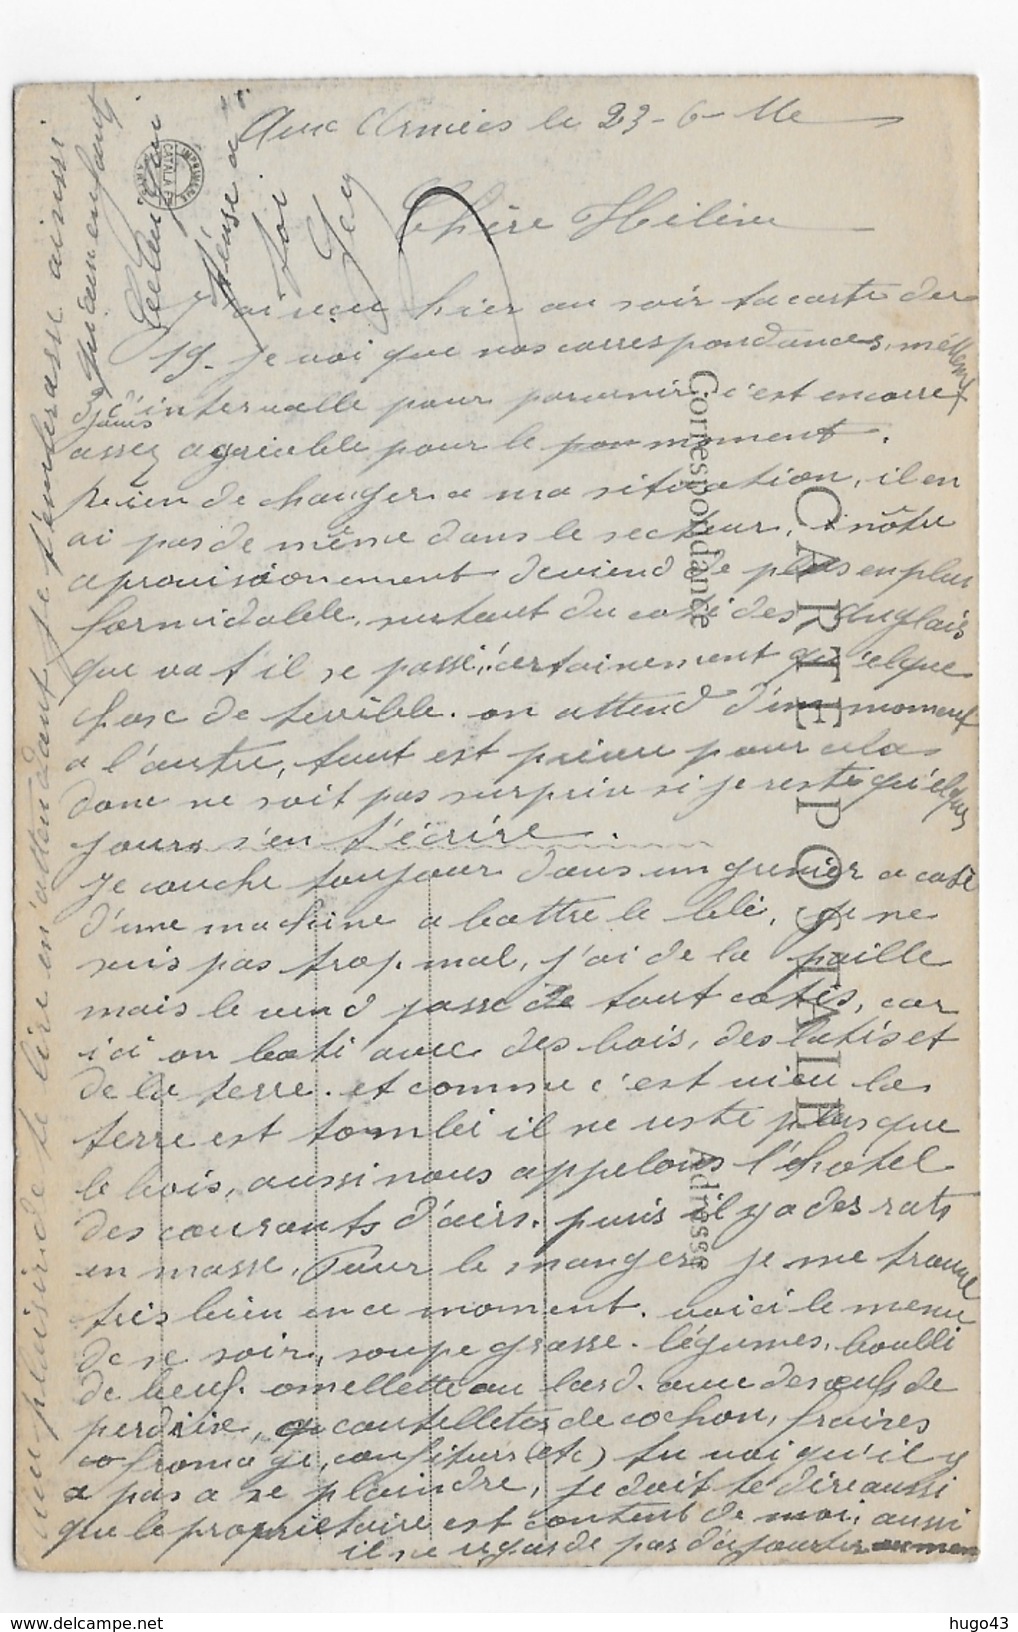 Aux Armées le 23-6-16
Chère Hélène
J'ai reçu hier au soir ta carte du
19. je voi que nos correspondances, mettent
3 jours d'intervalle pour parvenir c'est encorre
assez agréable pour le pou moment.
Rien de changer a ma situation, il en
ai pas de même dans le secteur, nôtre
aprovisionnement deviend de plus en plus
formidable, surtout du coté des Anglais
que va t'il se passé, certainement qu'elque
chose de terrible. on attend d'un moment
a l'autre, tout est prévu pour cela
donc ne soit pas surprise si je reste qu'elques
jours s'en t'écrire.
je couche toujour dans un grenier a coté
d'une machine a battre le blé, je ne
suis pas trop mal, j'ai de la paille
mais le vend passe de tout cotés, car
ici on bati avec des bois, des latis et
de la terre. et comme c'est vieu la
terre est tombéi il ne reste plus que
le bois, aussi nous appelons l'hotel
des courants d'airs. puis il y a des rats
en masse. Pour le manger je me trouve
très bien en ce moment. voici le menu
de se soir, soupe grasse. légumes. boulli
de beuf. omellette au lard. avec des œufs de
perdrix, coutelletes de cochon, fraises
fromage, confiture (etc) tu voi qu'il y
a pas a se plaindre, je doit te dire aussi
que le propriétaire est content de moi, aussi
il ne regarde pas d'ajouter au menu
au plaisir de te lire en attendant je t'embrasse ainsi
qu'aux enfants
Celui qui
pense a
toi
CARTE POSTALE
Correspondance
Adresse
CATALA F
PARIS
hugo43